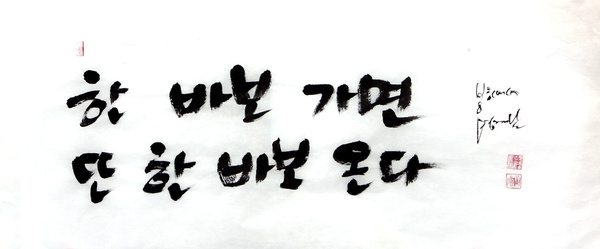 한 바보 가면
또 한 바보 온다